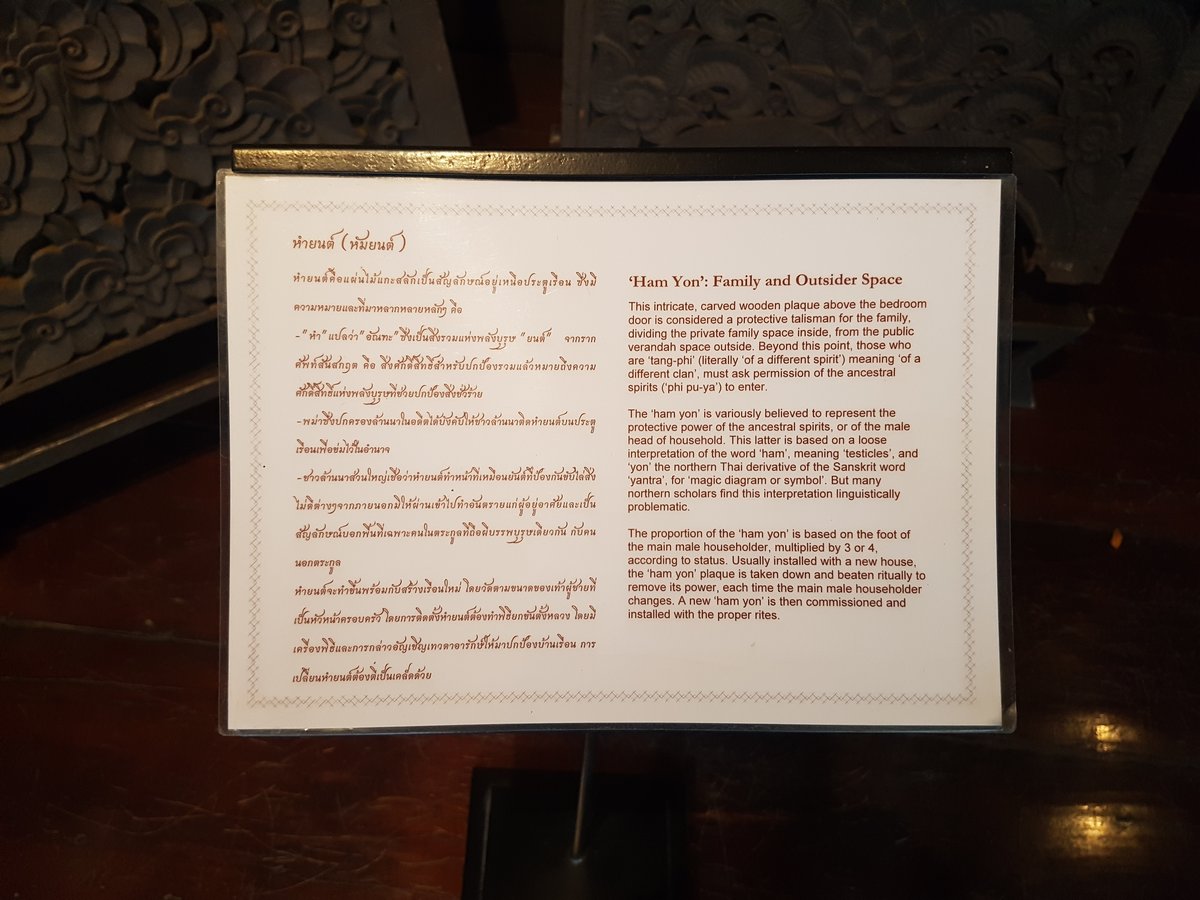 หำยนต์ (หัมยนต์)
หำยนต์คือแผ่นไม้แกะสลักเป็นสัญลักษณ์อยู่เหนือประตูเรือน ซึ่งมี
ความหมายและที่มาหลากหลายหลักๆ คือ
-"หำ" แปลว่า "อัณฑะ" ซึ่งเป็นสิ่งรวมแห่งพลังบุรุษ "ยนต์" จากราก
ศัพท์สันสกฤต คือ สิ่งศักดิ์สิทธิ์สำหรับปกป้องรวมแล้วหมายถึงความ
ศักดิ์สิทธิ์แห่งพลังบุรุษที่ช่วยปกป้องสิ่งชั่วร้าย
-พม่าซึ่งปกครองล้านนาในอดีตได้บังคับให้ชาวล้านนาติดหำยนต์บนประตู
เรือนเพื่อข่มไว้ในอำนาจ
-ชาวล้านนาส่วนใหญ่เชื่อว่าหำยนต์ทำหน้าที่เหมือนยันต์ที่ป้องกันขับไล่สิ่ง
ไม่ดีต่างๆจากภายนอกมิให้ผ่านเข้าไปทำอันตรายแก่ผู้อยู่อาศัยและเป็น
สัญลักษณ์บอกพื้นที่เฉพาะคนในตระกูลที่ถือผีบรรพบุรุษเดียวกัน กับคน
นอกตระกูล
หำยนต์จะทำขึ้นพร้อมกับสร้างเรือนใหม่ โดยวัดตามขนาดของเท้าผู้ชายที่
เป็นหัวหน้าครอบครัว โดยการติดตั้งหำยนต์ต้องทำพิธียกขันตั้งหลวง โดยมี
เครื่องพิธีและการกล่าวอัญเชิญเทวดาอารักษ์ให้มาปกป้องบ้านเรือน การ
เปลี่ยนหำยนต์ต้องตีเป็นเคล็ดด้วย
‘Ham Yon’: Family and Outsider Space
This intricate, carved wooden plaque above the bedroom
door is considered a protective talisman for the family,
dividing the private family space inside, from the public
verandah space outside. Beyond this point, those who
are ‘tang-phi’ (literally ‘of a different spirit’) meaning ‘of a
different clan’, must ask permission of the ancestral
spirits (‘phi pu-ya’) to enter.
The ‘ham yon’ is variously believed to represent the
protective power of the ancestral spirits, or of the male
head of household. This latter is based on a loose
interpretation of the word ‘ham’, meaning ‘testicles’, and
‘yon’ the northern Thai derivative of the Sanskrit word
‘yantra’, for ‘magic diagram or symbol’. But many
northern scholars find this interpretation linguistically
problematic.
The proportion of the ‘ham yon’ is based on the foot of
the main male householder, multiplied by 3 or 4,
according to status. Usually installed with a new house,
the ‘ham yon’ plaque is taken down and beaten ritually to
remove its power, each time the main male householder
changes. A new ‘ham yon’ is then commissioned and
installed with the proper rites.